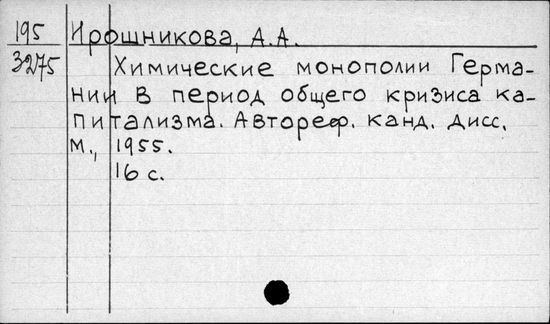 195 Ирошникова, А.А.
3275 Химические монополии Герма-
нии в период общего кризиса ка-
питализма. Автореф. канд. дисс.
М., 1955.
16 с.